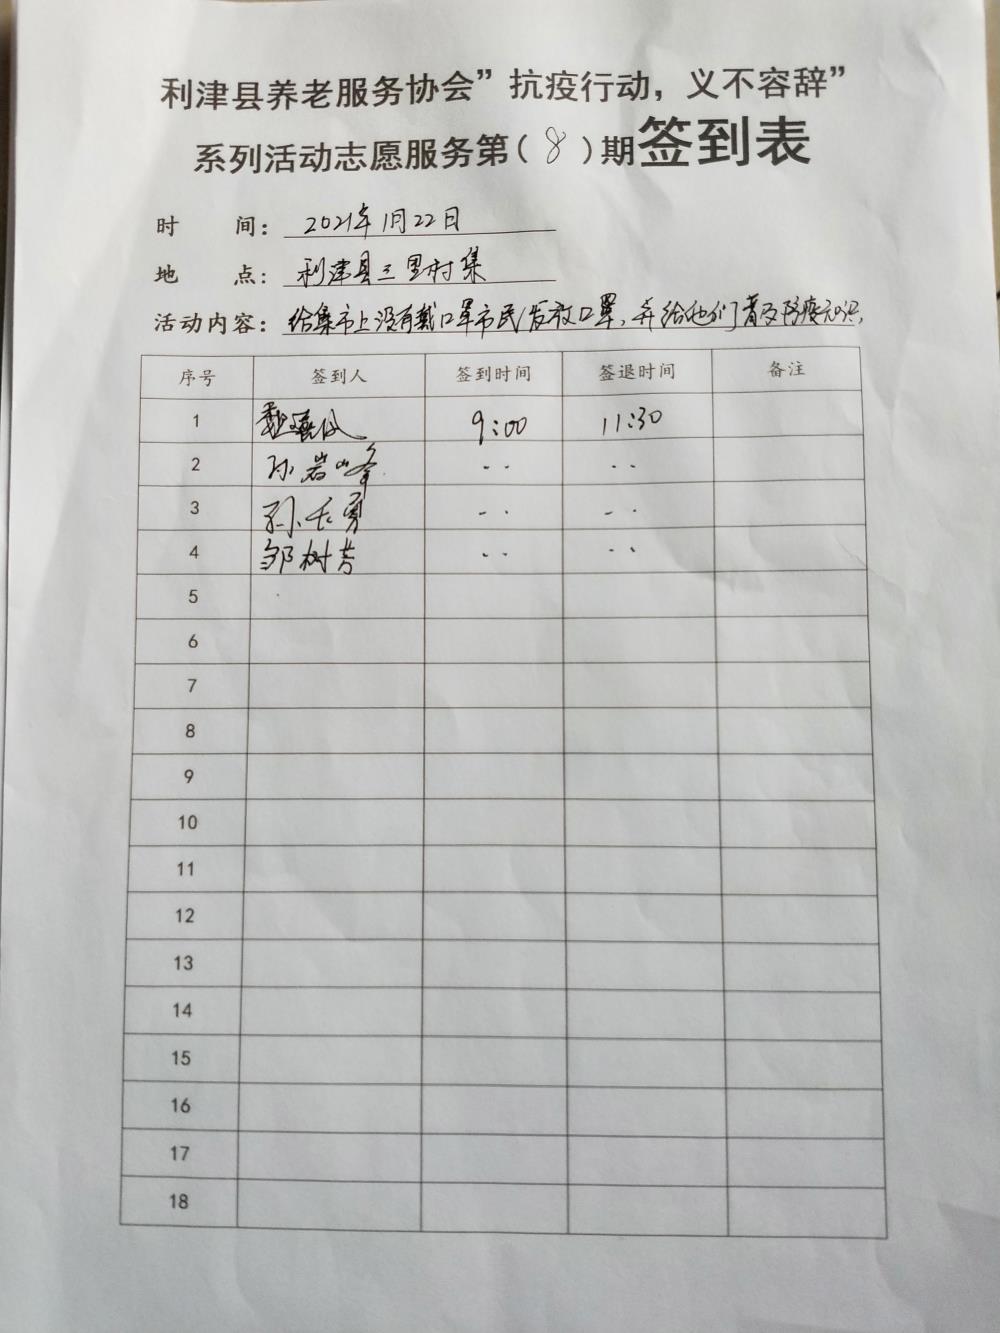 利津县养老服务协会”抗疫行动，义不容辞”
系列活动志愿服务第（8）期签到表
时 间：2021年1月22日
地 点：利津县三里村集
活动内容：给集市上没有戴口罩市民发放口罩，并给他们普及防疫知识，
序号 签到人 签到时间 签退时间 备注
1 9:00 11:30
2 孙岩峰 ·· ··
3 孙 勇 ·· ··
4 邹树芳 ·· ··
5
6
7
8
9
10
11
12
13
14
15
16
17
18